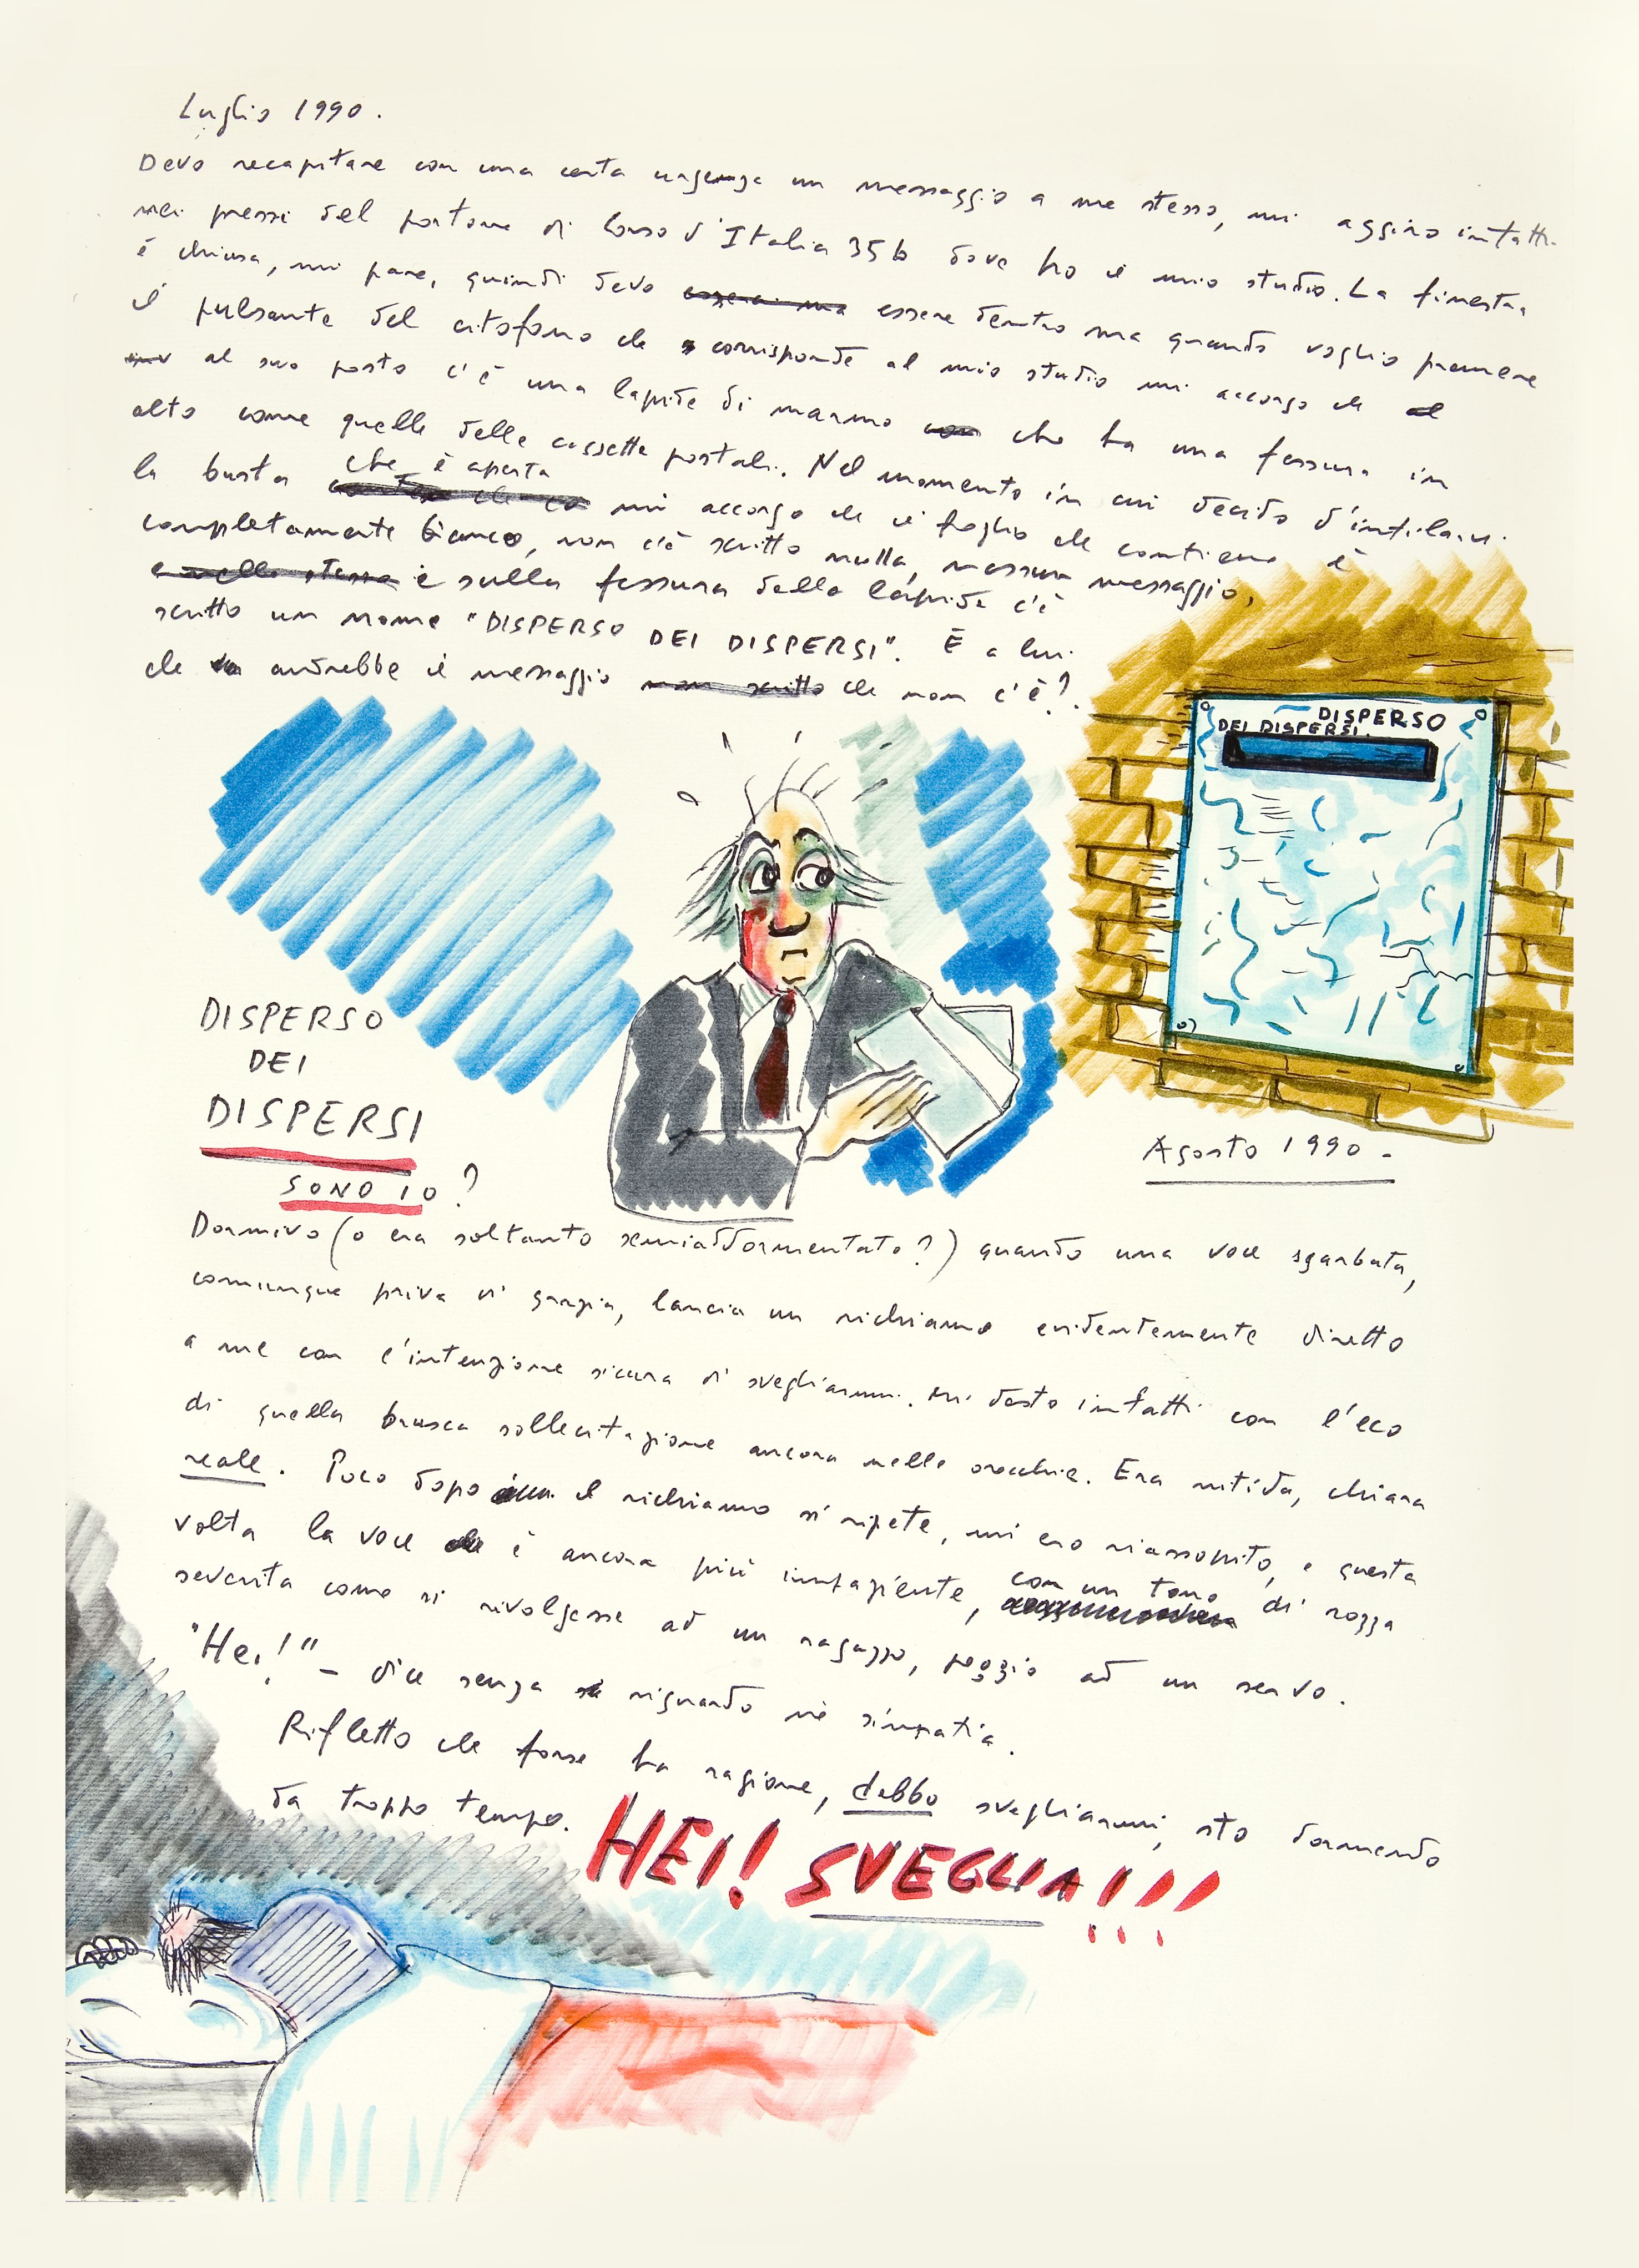 Luglio 1990.
Devo recapitare con una certa urgenza un messaggio a me stesso, mi aggiro infatti
nei pressi del portone di Corso d'Italia 35b dove ho il mio studio. La finestra
è chiusa, mi pare, quindi devo essere dentro ma quando voglio premere
il pulsante del citofono che corrisponde al mio studio mi accorgo che
al suo posto c'è una lapide di marmo che ha una fessura in
alto come quelle delle cassette postali. Nel momento in cui decido d'infilarvi
la busta che è aperta mi accorgo che il foglio che contiene è
completamente bianco, non c'è scritto nulla, nessun messaggio,
e sulla fessura della lapide c'è
scritto un nome "DISPERSO DEI DISPERSI". È a lui
che andrebbe il messaggio che non c'è?
DISPERSO
DEI DISPERSI.
DISPERSO
DEI
DISPERSI
SONO IO?
Agosto 1990.
Dormivo (o ero soltanto semiaddormentato?) quando una voce sgarbata,
comunque priva di grazia, lancia un richiamo evidentemente diretto
a me con l'intenzione sicura di svegliarmi. Mi desto infatti con l'eco
di quella brusca sollecitazione ancora nelle orecchie. Era nitida, chiara
reale. Poco dopo il richiamo si ripete, mi ero riassopito, e questa
volta la voce è ancora più impaziente, con un tono di rozza
severità come si rivolgesse ad un ragazzo, peggio ad un servo.
"Hei!" - dice senza riguardo nè simpatia.
Rifletto che forse ha ragione, debbo svegliarmi, sto dormendo
da troppo tempo.
HEI! SVEGLIA!!!